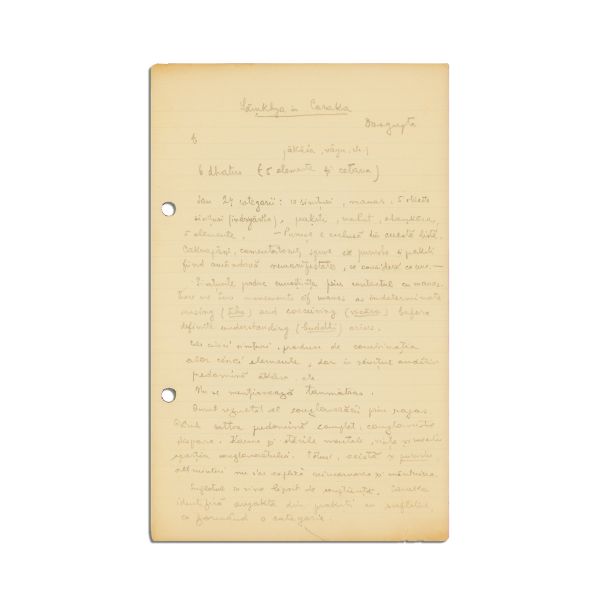 Sāṃkhya in Caraka
Dasgupta
(ākāśa, vāyu, etc)
6 dhatus (5 elemente și cetana)
Sau 24 categorii: 10 simțuri, manas, 5 obiecte
simțuri (indriyārtha), prakṛti, mahat, ahaṃkāra,
5 elemente. — Puruṣa e exclusă din această listă.
Cakrapāṇi, comentatorul, spune că puruṣa și prakṛti
fiind amândouă nemanifestate, se consideră ca una. —
produc cunoștința prin contactul cu manas.
There are two movements of manas as indeterminate
sensing (ūha) and conceiving (vicāra) before
definite understanding (buddhi) arises.
Cele cinci simțuri, produse de combinația
celor cinci elemente, dar în simțul auditiv
predomină ākāśa, etc.
Nu se menționează tanmātras.
Omul rezultat al conglomerării prin rajas
Când sattva predomină complet, conglomeratul
dispare. Karma și stările mentale,
apariția conglomeratului. există și puruṣa
altminteri nu s-ar explica reincarnarea și mântuirea.
Sufletul în sine lipsit de conștiență. Caraka
identifică avyakta din prakṛti cu sufletul
ca formând o categorie.